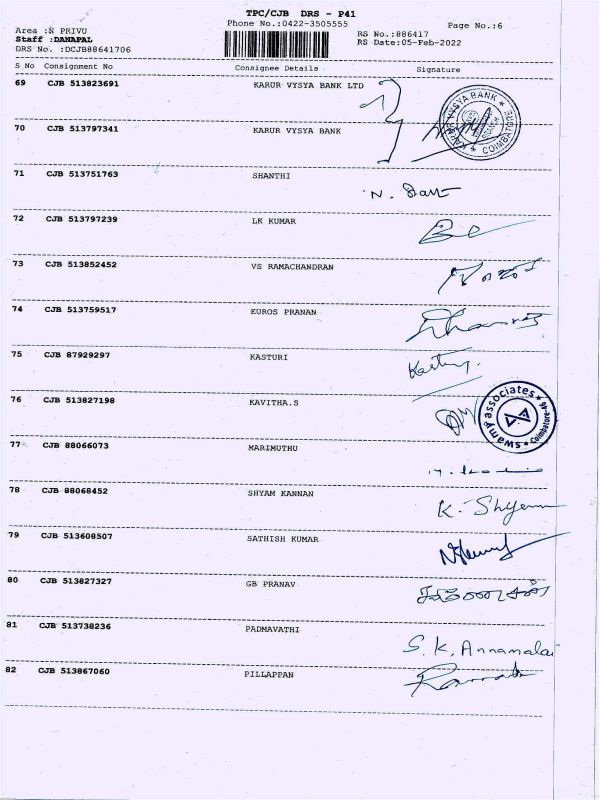 TPC/CJB DRS - P41
Phone No.:0422-3505555
Page No.:6
Area :N PRIVU
Staff :DANAPAL
DRS No. :DCJB88641706
RS No.:886417
RS Date:05-Feb-2022
S No Consignment No Consignee Details Signature
69 CJB 513823691 KARUR VYSYA BANK LTD
70 CJB 513797341 KARUR VYSYA BANK
KARUR VYSYA BANK ★ COIMBATORE ★
71 CJB 513751763 SHANTHI
N.
72 CJB 513797239 LK KUMAR
73 CJB 513852452 VS RAMACHANDRAN
74 CJB 513759517 EUROS PRANAN
75 CJB 87929297 KASTURI
76 CJB 513827198 KAVITHA.S
swamy associates ★ Coimbatore-45 ★
77 CJB 88066073 MARIMUTHU
78 CJB 88068452 SHYAM KANNAN
K. Shyam
79 CJB 513608507 SATHISH KUMAR
80 CJB 513827327 GB PRANAV
81 CJB 513738236 PADMAVATHI
S.K. Annamalai
82 CJB 513867060 PILLAPPAN